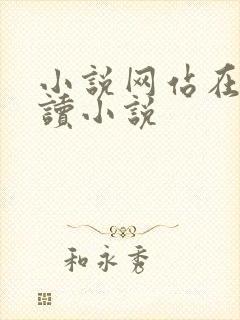 小説网佔在
讀小説
和永秀